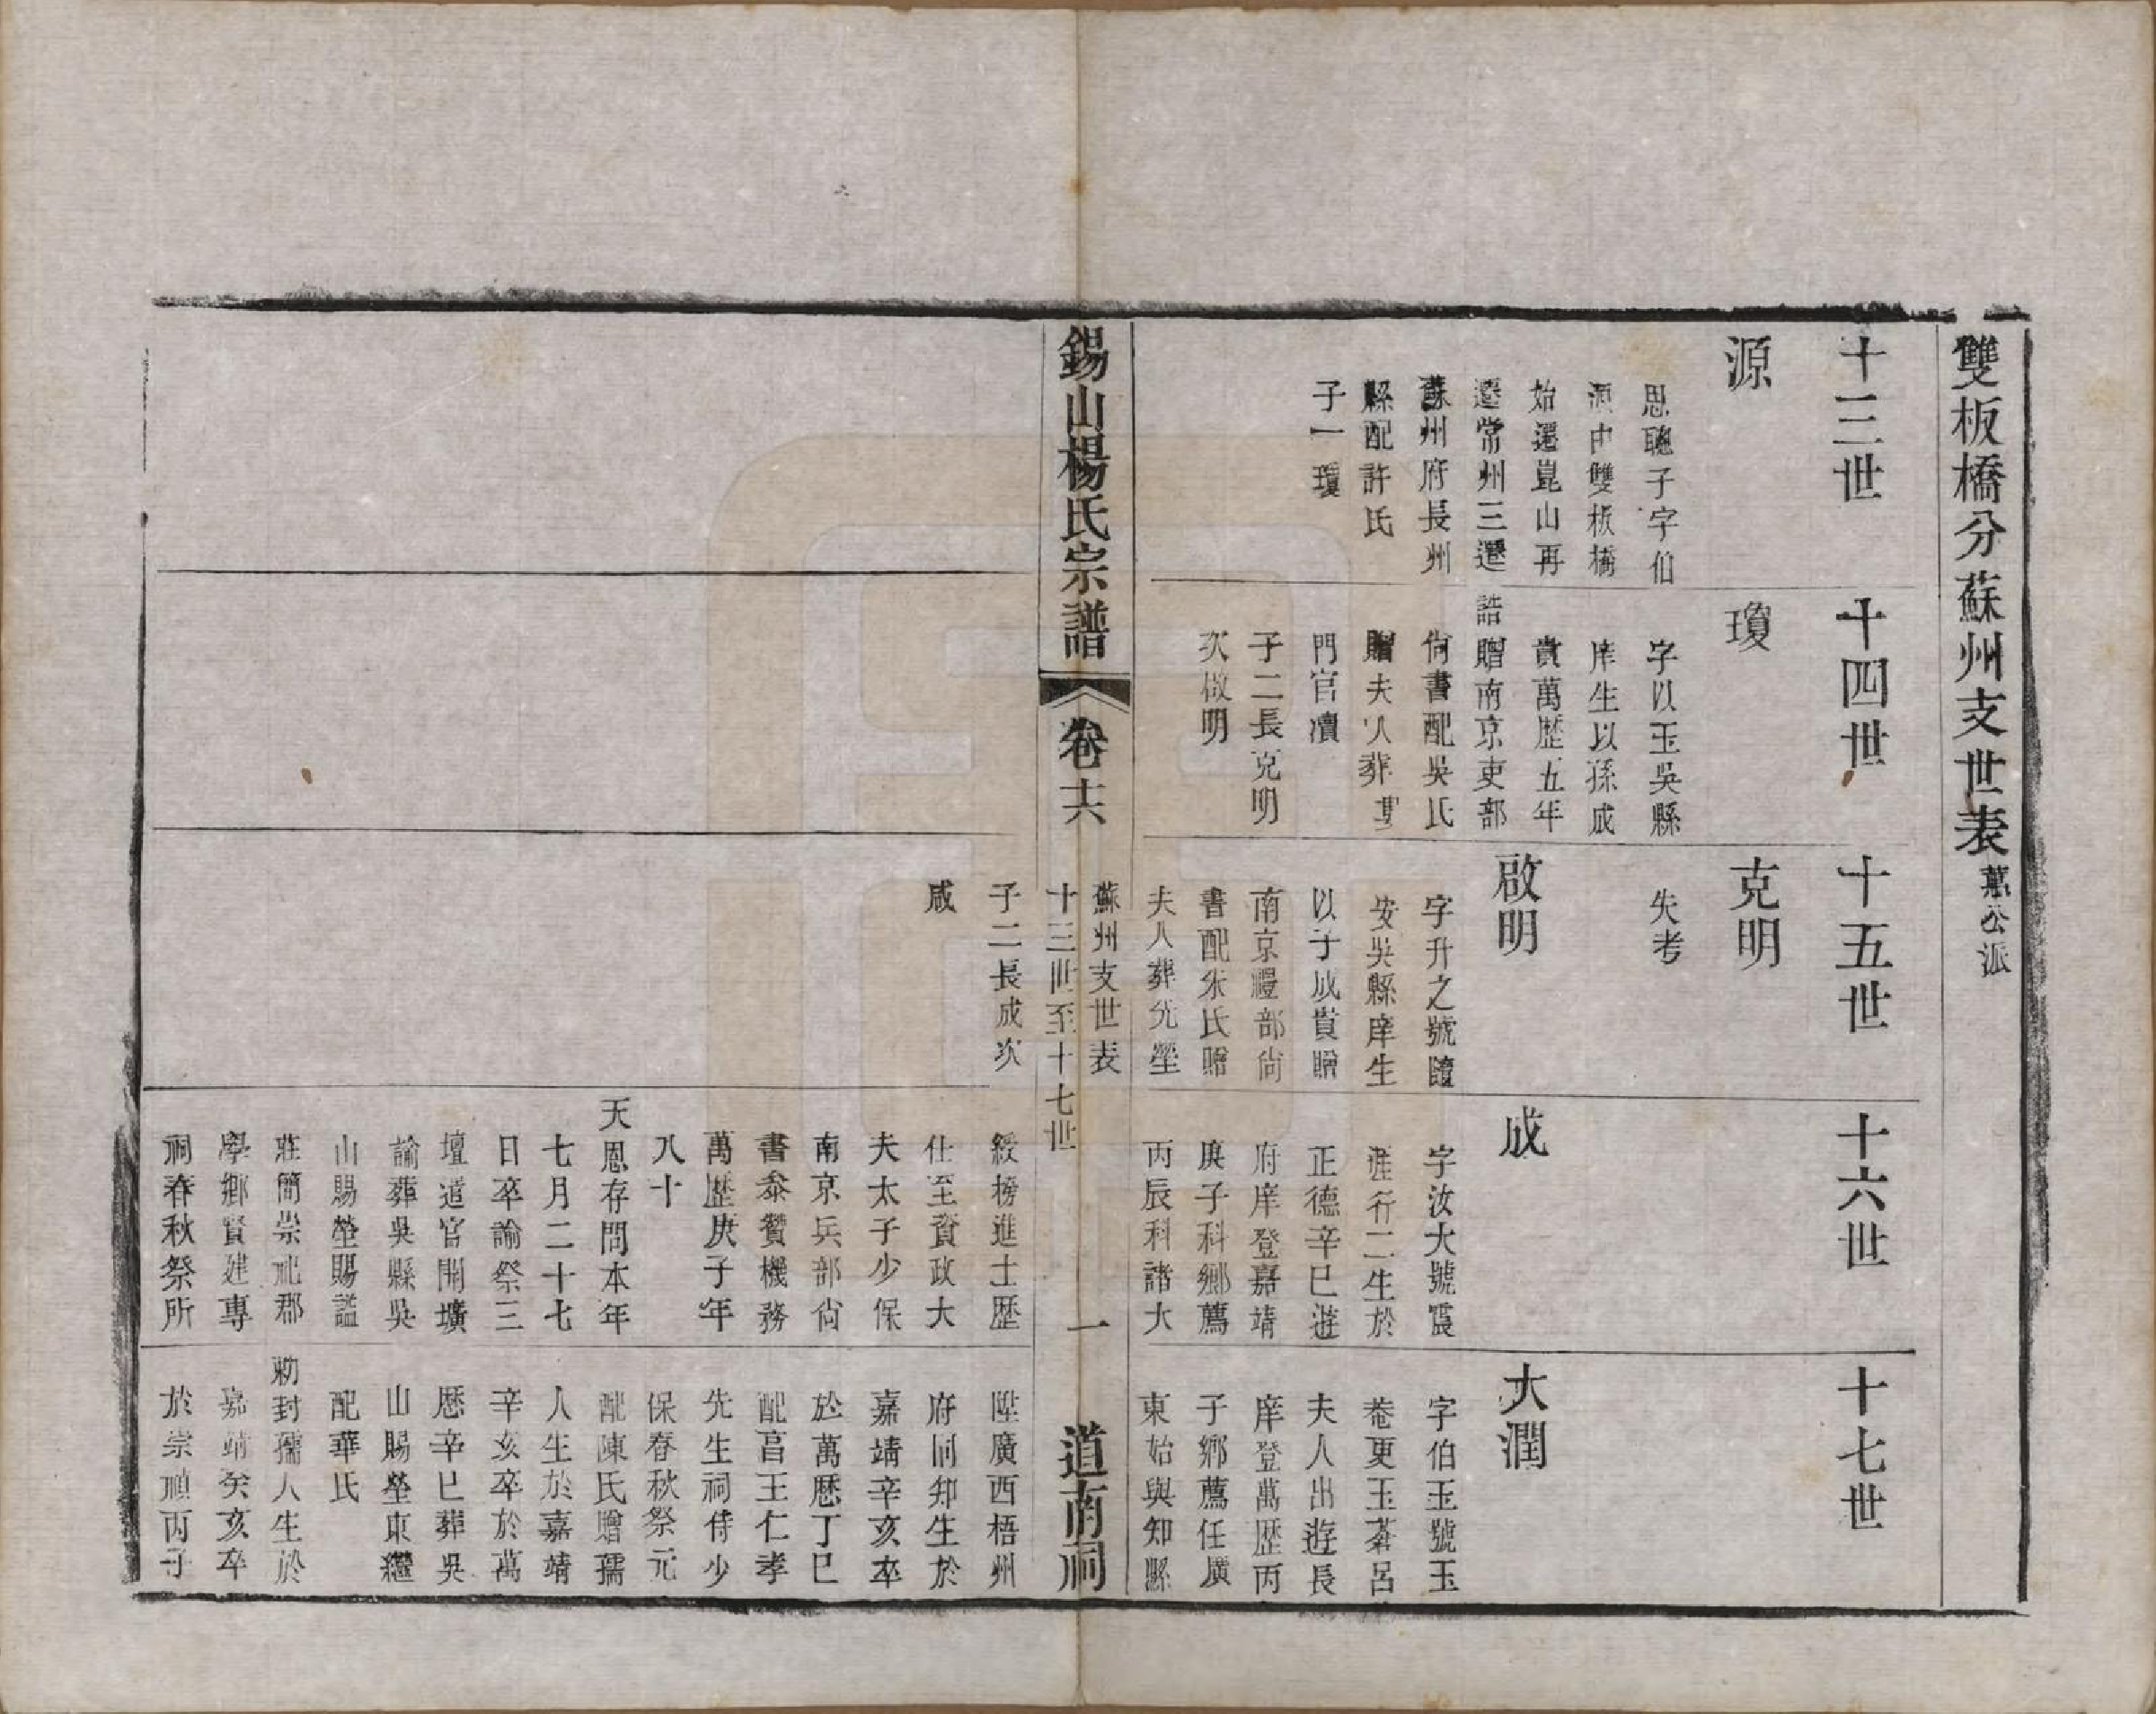 雙板橋分蘇州支世表
公派
十三世
源
思聰子字伯
源由雙板橋
始遷崑山再
遷常州三遷
蘇州府長州
縣配許氏
子一瓊
十四世
瓊
字以玉吳縣
庠生以孫成
貴萬歷五年
誥贈南京吏部
尙書配吳氏
贈夫人葬葑
門官瀆
子二長克明
次啟明
十五世
克明
失考
啟明
字升之號隨
安吳縣庠生
以子成貴贈
南京禮部尙
書配朱氏贈
夫人葬先塋
十六世
成
字汝大號震
涯行二生於
正德辛巳遊
府庠登嘉靖
庚子科鄉薦
丙辰科諸大
十七世
大潤
字伯玉號玉
菴更玉菴呂
夫人出遊長
庠登萬歷丙
子鄉薦任廣
東始興知縣
錫山楊氏宗譜
卷十六
蘇州支世表
十三世至十七世
一
道南祠
子二長成次
咸
綬榜進士歷
仕至資政大
夫太子少保
南京兵部尙
書叅贊機務
萬歷庚子年
八十
天恩存問本年
七月二十七
日卒諭祭三
壇道官開壙
諭葬吳縣吳
山賜塋賜諡
莊簡崇祀郡
學鄉賢建專
祠春秋祭所
陞廣西梧州
府同知生於
嘉靖辛亥卒
於萬歷丁巳
配昌王仁孝
先生祠侍少
保春秋祭元
配陳氏贈孺
人生於嘉靖
辛亥卒於萬
歷辛巳葬吳
山賜塋東繼
配華氏
勅封孺人生於
嘉靖癸亥卒
於崇禎丙子